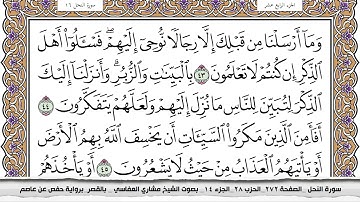 الجزء الرابع عشر
سورة النحل ١٦
وَمَآ أَرْسَلْنَا مِن قَبْلِكَ إِلَّا رِجَالًا نُّوحِىٓ إِلَيْهِمْ ۚ فَسْـَٔلُوٓا۟ أَهْلَ
ٱلذِّكْرِ إِن كُنتُمْ لَا تَعْلَمُونَ ٤٣ بِٱلْبَيِّنَـٰتِ وَٱلزُّبُرِ ۗ وَأَنزَلْنَآ إِلَيْكَ
ٱلذِّكْرَ لِتُبَيِّنَ لِلنَّاسِ مَا نُزِّلَ إِلَيْهِمْ وَلَعَلَّهُمْ يَتَفَكَّرُونَ ٤٤
أَفَأَمِنَ ٱلَّذِينَ مَكَرُوا۟ ٱلسَّيِّـَٔاتِ أَن يَخْسِفَ ٱللَّهُ بِهِمُ ٱلْأَرْضَ
أَوْ يَأْتِيَهُمُ ٱلْعَذَابُ مِنْ حَيْثُ لَا يَشْعُرُونَ ٤٥ أَوْ يَأْخُذَهُمْ
سورة النحل .. الصفحة ٢٧٢ الحزب ٢٨ الجزء ١٤ .. بصوت الشيخ مشاري العفاسي .. بالقصر برواية حفص عن عاصم